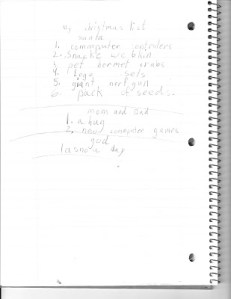 my christmas list
santa
1. commputer
2. snacks
3. pet hermet crabs
4. lego sets
5. giant nerf gun
6. pack of seeds
mom and dad
1. a bag
2. new computer games
god
1. a snow day